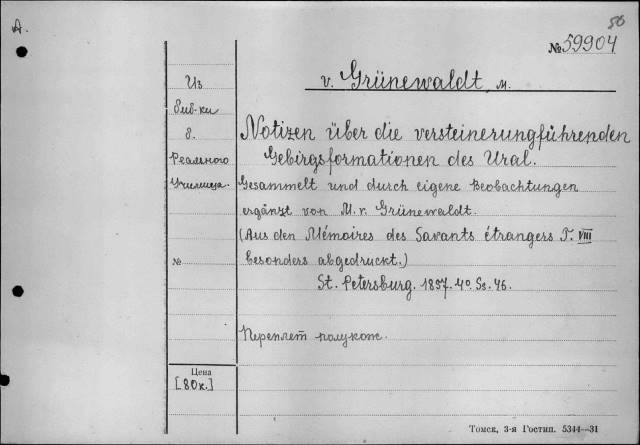 A.
50
№ 59904
v. Grünewaldt, M.
Из
биб-ки
б.
Реального
Училища.
Notizen über die versteinerungführenden
Gebirgsformationen des Ural.
Gesammelt und durch eigene Beobachtungen
ergänzt von M. v. Grünewaldt.
(Aus den Mémoires des Savants étrangers T. VIII
besonders abgedruckt.)
№
St. Petersburg. 1857. 4°. Ss. 46.
Переплет полукож.
Цена
[80к.]
Томск, 3-я Гостип. 5344—31